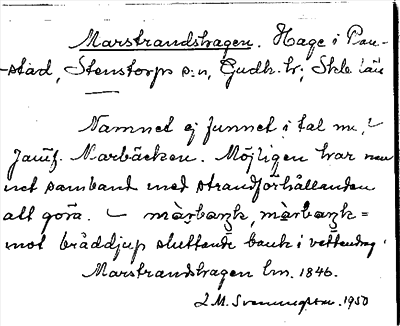 Marstrandshagen. Hage i Pau-
-stad, Stenstorps s:n, Gudh. hr; Skbl. län
Namnet ej funnet i tal nu,
Jämf. Marbäcken. Möjligen har nam
net samband med strandförhållanden
att göra. – màrbaŋk, màrbaŋk =
mot bråddjup sluttande bank i vattendrag.
Marstrandshagen lm. 1846.
L M. Svenungsson. 1950